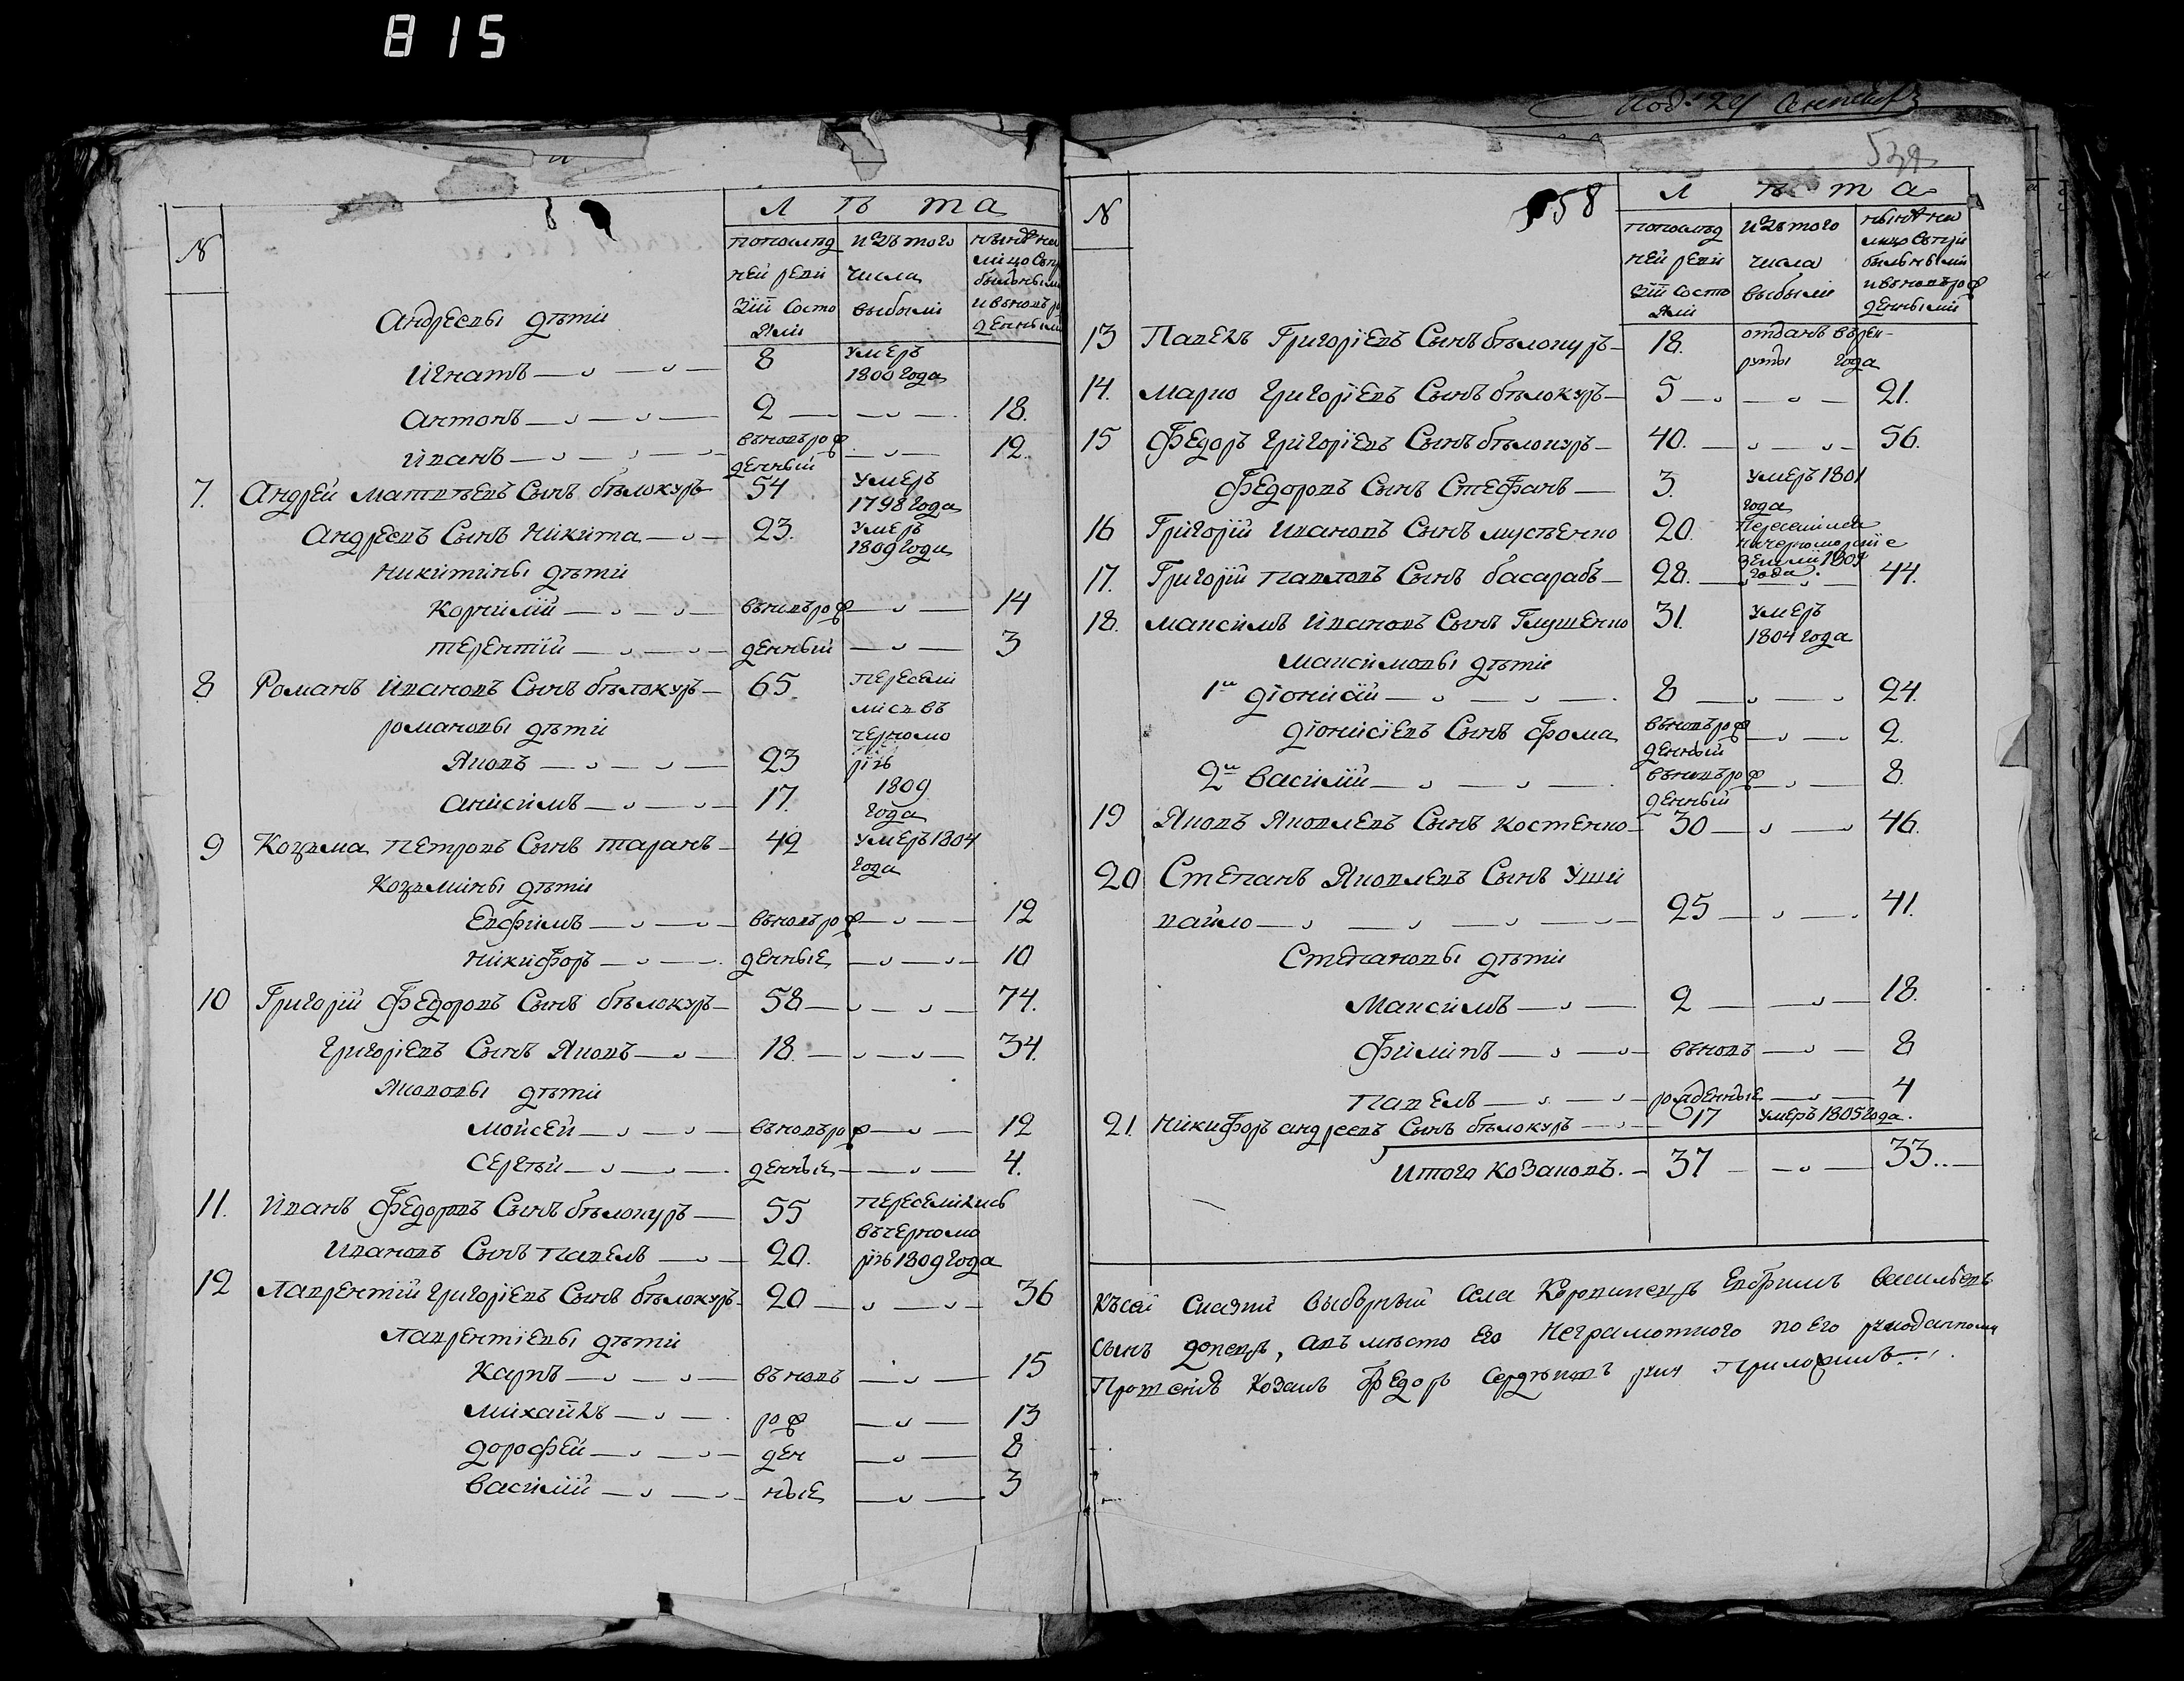 815
Под. 24 Сентебр
№
Л Ѣ Т А
попослѣд
ней реви
зїй состо
яли
изъ того
числа
выбыли
нынѣ на
лицо съ при
былыми
и вновь ро
денными
Андреевы дѣти
Игнатъ 8 умеръ
1800 года
Антонъ 2 18.
Иванъ вновьрож
денный 12.
7. Андрей Матвѣевъ Сынъ бѣлокуръ 54 умеръ
1798 года
Андреевъ Сынъ Никита 23. умеръ
1809 года
Никитины дѣти
Корнилїй вновьрож 14
терентїй денный 3
8 Романъ Ивановъ Сынъ бѣлокуръ 65. пересели
лись въ
черномо
рїю
1809
года
романовы дѣти
Яковъ 23
анисимъ 17.
9 Козьма Петровъ Сынъ таранъ 49 умеръ 1804
года
Козьмины дѣти
Евфимъ вновьрож 12
никифоръ денные 10
10 Григорїй Федоровъ Сынъ бѣлокуръ 58 74.
григорїевъ Сынъ Яковъ 18. 34.
Якововы дѣти
мойсей вновьрож 12
Сергѣй денные 4.
11. Иванъ Федоровъ Сынъ бѣлокуръ 55 переселились
въ черномо
рїю 1809 года
Ивановъ Сынъ павелъ 20.
12 Лаврентїй григорїевъ Сынъ бѣлокуръ 20 36
Лаврентїевы дѣти
Карпъ вновь 15
михайлъ рож 13
дорофей ден 8
василїй ные 3
№
58
Л Ѣ Т А
попослѣд
ней реви
зїй состо
яли
изъ того
числа
выбыли
нынѣ на
лицо съ при
былыми
и вновьрож
денными
13 Павелъ Григорїевъ Сынъ бѣлокуръ 18. отданъ въ рек-
руты года
14. Марко григорїевъ Сынъ бѣлокуръ 5 21.
15 Федоръ григорїевъ Сынъ бѣлокуръ 40. 56.
Федоровъ Сынъ Стефанъ 3. умеръ 1801
года
16 Григорїй Ивановъ Сынъ мусѣенко 20. Переселился
на черноморїи
земли 1809
года.
17. Григорїй павловъ Сынъ басарабъ 28. 44.
18. максимъ Ивановъ Сынъ Глущенко 31. умеръ
1804 года
максимовы дѣти
1й дїонисїй 8 24.
дїонисїевъ Сынъ фома вновьрож
денный 2.
2й василїй вновьрож
денный 8.
19 Яковъ Яковлевъ Сынъ костенко 30 46.
20 Степанъ Яковлевъ Сынъ Уши
вайло 25 41.
Степановы дѣти
Максимъ 2 18.
филипъ вновь 8
павелъ рожденные 4
21. Никифоръ андреевъ Сынъ бѣлокуръ 17 умеръ 1805 года.
Итого Козаковъ. 37 33.
Къ сей Сказки выборный села Евфимъ васильевъ
сынъ донецъ, авъ мѣсто его неграмотного по его рукоданному
Прошенїю козакъ Федоръ Сердюковъ руку приложилъ.